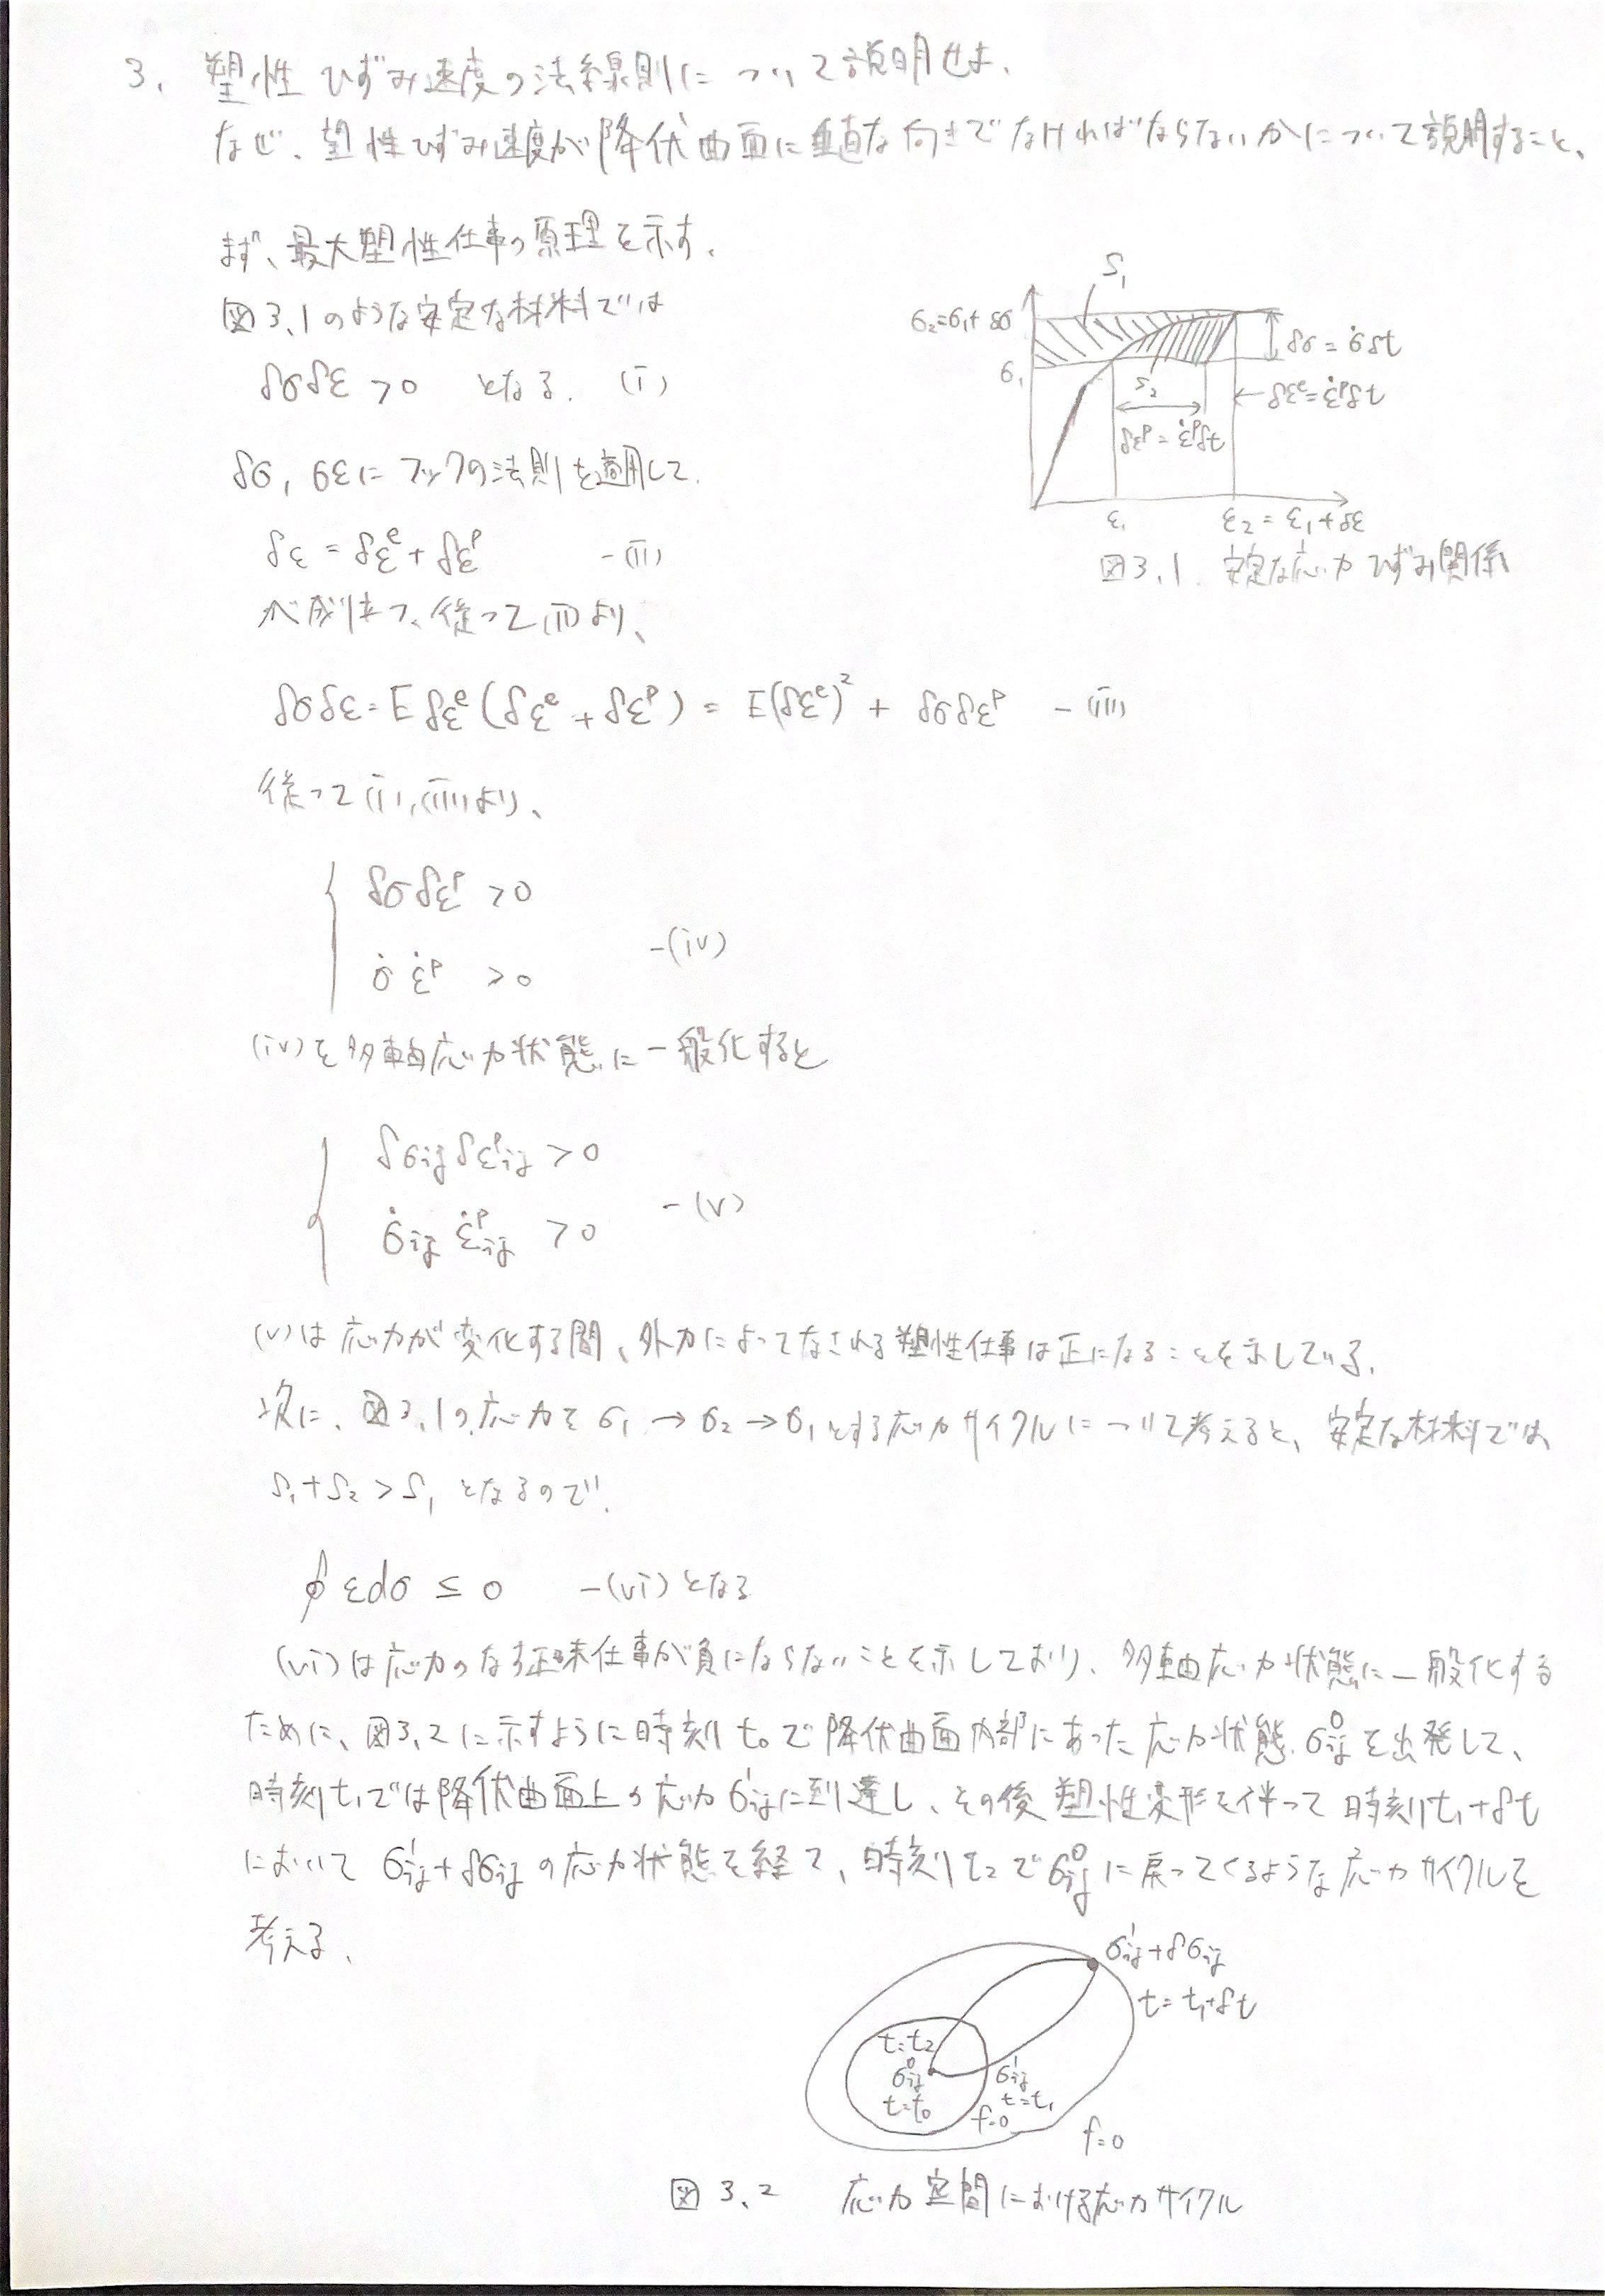 3. 塑性ひずみ速度の法線則について説明せよ.
なぜ、塑性ひずみ速度が降伏曲面に垂直な向きでなければならないかについて説明すること、
まず、最大塑性仕事の原理を示す.
図3.1のような安定な材料では
δσδε > 0 となる. (i)
S₁
σ₂=σ₁+δσ
σ₁
S₂
δσ = σ̇δt
δεᵉ=ε̇ᵉδt
δεᵖ = ε̇ᵖδt
ε₁ ε₂ = ε₁+δε
図3.1. 安定な応力ひずみ関係
δσ, δεにフックの法則を適用して.
δε = δεᵉ + δεᵖ -(ii)
が成り立つ、従って(ii)より、
δσδε = E δεᵉ (δεᵉ + δεᵖ) = E(δεᵉ)² + δσδεᵖ -(iii)
従って(i),(iii)より、
δσδεᵖ > 0
σ̇ ε̇ᵖ > 0 -(iv)
(iv)を多軸応力状態に一般化すると
δσij δεᵖij > 0
σ̇ij ε̇ᵖij > 0 -(v)
(v)は応力が変化する間、外力によってなされる塑性仕事は正になることを示している.
次に、図3.1の応力をσ₁ → σ₂ → σ₁とする応力サイクルについて考えると、安定な材料では、
S₁+S₂ > S₁ となるので.
∮ εdσ ≤ 0 -(vi) となる
(vi)は応力のなす正味仕事が負にならないことを示しており、多軸応力状態に一般化する
ために、図3.2に示すように時刻t₀で降伏曲面内部にあった応力状態σ⁰ijを出発して、
時刻t₁では降伏曲面上の応力σ¹ijに到達し、その後塑性変形を伴って時刻t₁+δt
において σ¹ij+δσij の応力状態を経て、時刻t₂でσ⁰ijに戻ってくるような応力サイクルを
考える.
σ¹ij+δσij
t= t₁+δt
t=t₂
σ⁰ij
t=t₀
σ¹ij
t=t₁
f=0
f=0
図3.2 応力空間における応力サイクル